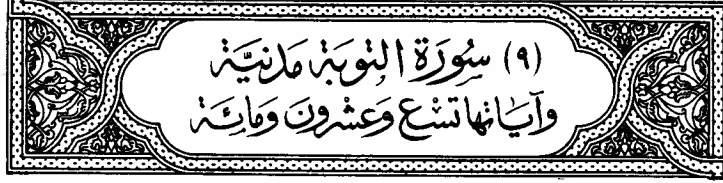 (٩) سُورَة التوبَة مَدنيَّة
وآيَاتها تسْع وَعشرُون وَمائة